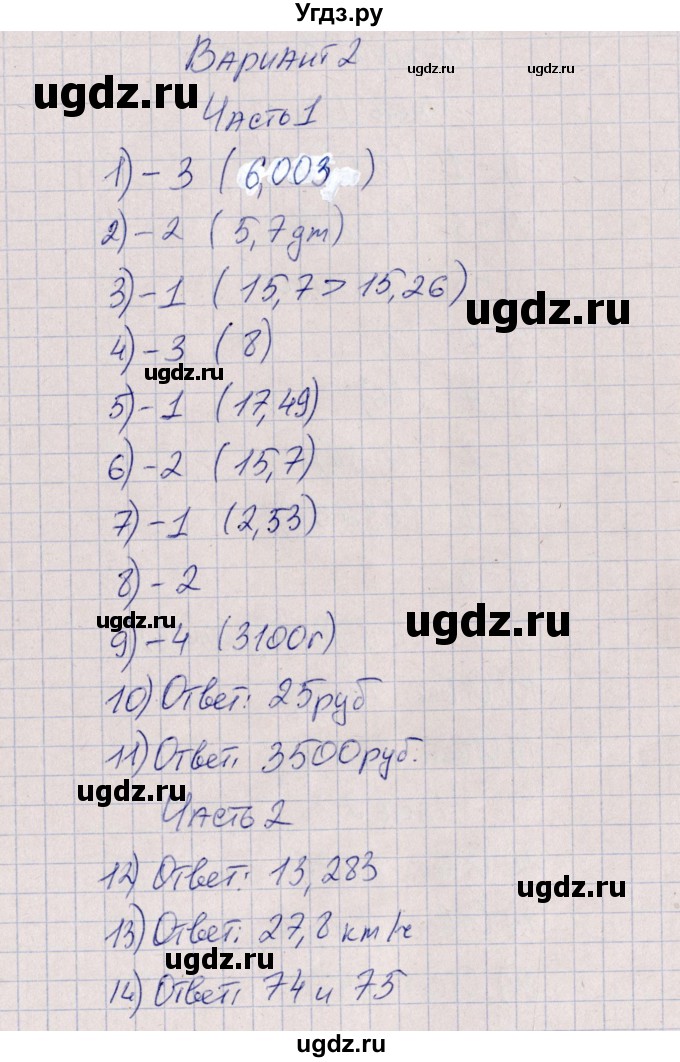 Угдз.ру
Вариант 2
ugdz.ru ugdz.ru
ugdz.ru
Часть 1
1) - 3 (6,003)
2) - 2 (5,7 дм)
3) - 1 (15,7 > 15,26)
ugdz.ru
4) - 3 (8)
ugdz.ru
5) - 1 (17,49)
6) - 2 (15,7)
7) - 1 (2,53)
8) - 2
ugdz.ru
ugdz.ru
9) - 4 (3100г)
10) Ответ: 25руб
11) Ответ: 3500руб.
ugdz.ru
Часть 2
12) Ответ: 13,283
ugdz.ru
13) Ответ: 27,8 км/ч
ugdz.ru
14) Ответ: 74 и 75
ugdz.ru